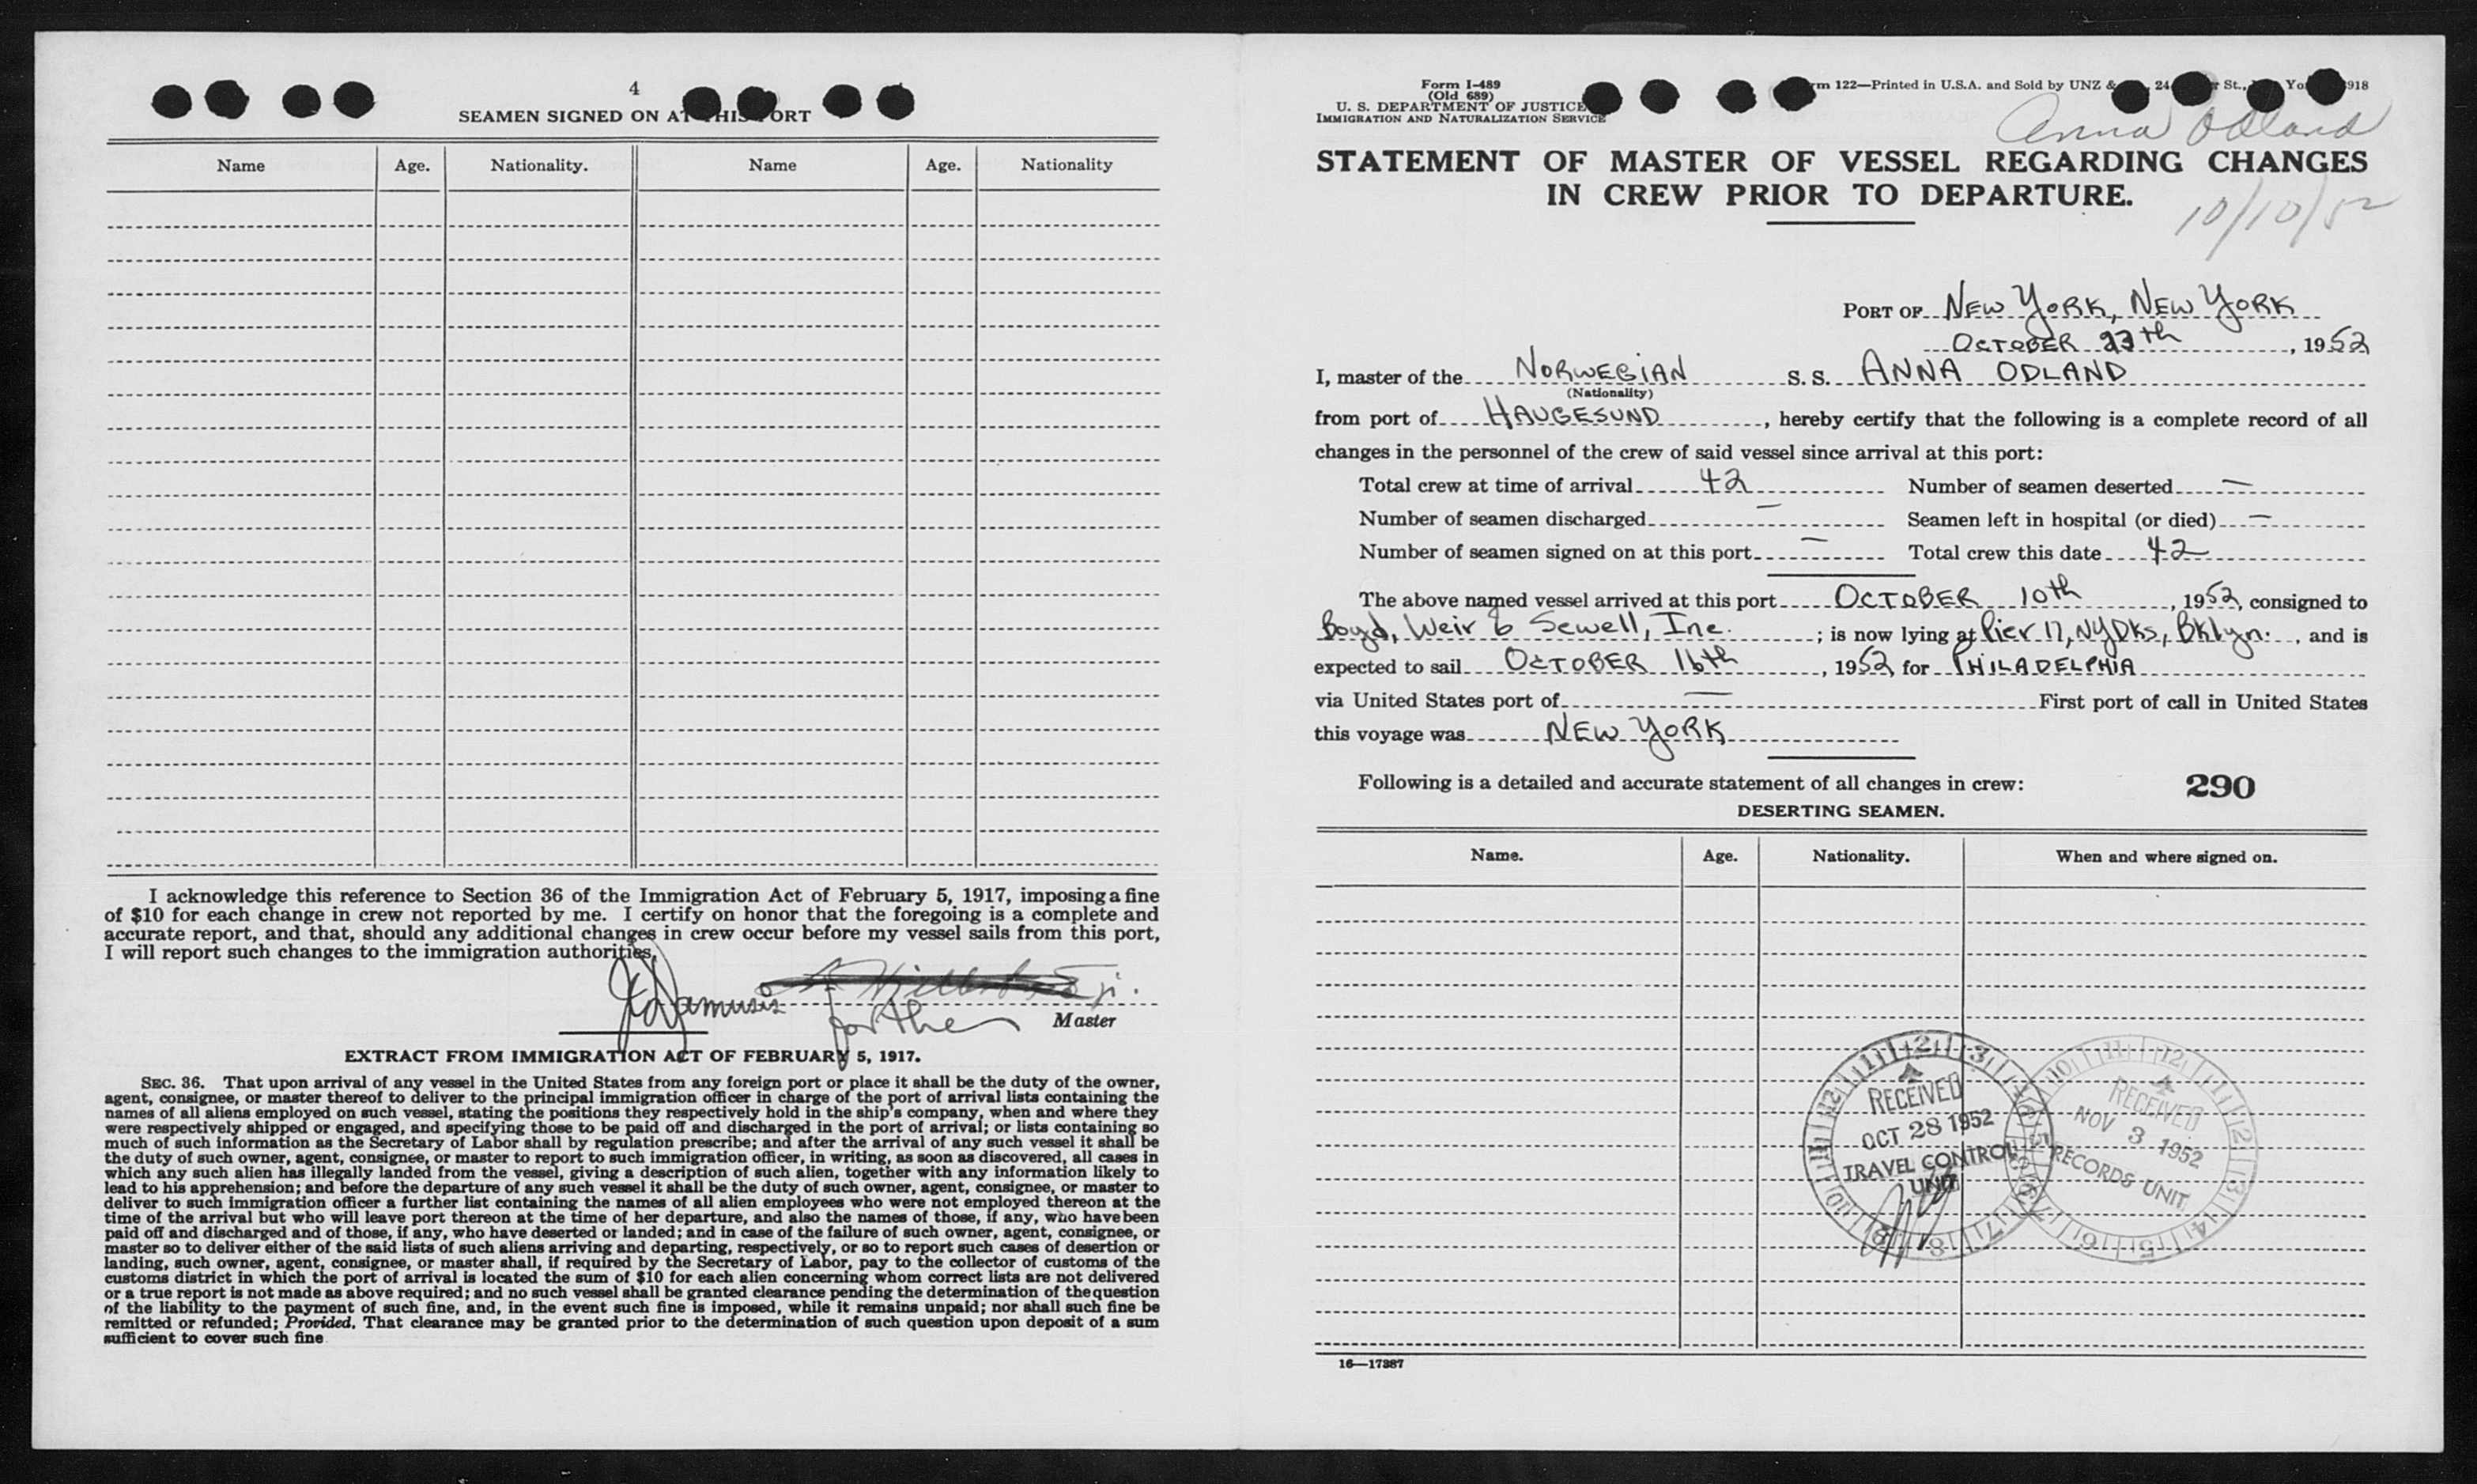 4
SEAMEN SIGNED ON AT THIS PORT
Name Age. Nationality. Name Age. Nationality
I acknowledge this reference to Section 36 of the Immigration Act of February 5, 1917, imposing a fine
of $10 for each change in crew not reported by me. I certify on honor that the foregoing is a complete and
accurate report, and that, should any additional changes in crew occur before my vessel sails from this port,
I will report such changes to the immigration authorities.
for the Master
EXTRACT FROM IMMIGRATION ACT OF FEBRUARY 5, 1917.
SEC. 36. That upon arrival of any vessel in the United States from any foreign port or place it shall be the duty of the owner,
agent, consignee, or master thereof to deliver to the principal immigration officer in charge of the port of arrival lists containing the
names of all aliens employed on such vessel, stating the positions they respectively hold in the ship's company, when and where they
were respectively shipped or engaged, and specifying those to be paid off and discharged in the port of arrival; or lists containing so
much of such information as the Secretary of Labor shall by regulation prescribe; and after the arrival of any such vessel it shall be
the duty of such owner, agent, consignee, or master to report to such immigration officer, in writing, as soon as discovered, all cases in
which any such alien has illegally landed from the vessel, giving a description of such alien, together with any information likely to
lead to his apprehension; and before the departure of any such vessel it shall be the duty of such owner, agent, consignee, or master to
deliver to such immigration officer a further list containing the names of all alien employees who were not employed thereon at the
time of the arrival but who will leave port thereon at the time of her departure, and also the names of those, if any, who have been
paid off and discharged and of those, if any, who have deserted or landed; and in case of the failure of such owner, agent, consignee, or
master so to deliver either of the said lists of such aliens arriving and departing, respectively, or so to report such cases of desertion or
landing, such owner, agent, consignee, or master shall, if required by the Secretary of Labor, pay to the collector of customs of the
customs district in which the port of arrival is located the sum of $10 for each alien concerning whom correct lists are not delivered
or a true report is not made as above required; and no such vessel shall be granted clearance pending the determination of the question
of the liability to the payment of such fine, and, in the event such fine is imposed, while it remains unpaid; nor shall such fine be
remitted or refunded; Provided, That clearance may be granted prior to the determination of such question upon deposit of a sum
sufficient to cover such fine
Form I-489
(Old 689)
U. S. DEPARTMENT OF JUSTICE
IMMIGRATION AND NATURALIZATION SERVICE
rm 122—Printed in U.S.A. and Sold by UNZ & 24 St., Yo 918
Anna Odland
STATEMENT OF MASTER OF VESSEL REGARDING CHANGES
IN CREW PRIOR TO DEPARTURE.
10/10/52
PORT OF NEW YORK, NEW YORK
OCTOBER 27th, 1952
I, master of the NORWEGIAN S. S. ANNA ODLAND
(Nationality)
from port of HAUGESUND, hereby certify that the following is a complete record of all
changes in the personnel of the crew of said vessel since arrival at this port:
Total crew at time of arrival 42 Number of seamen deserted —
Number of seamen discharged — Seamen left in hospital (or died) —
Number of seamen signed on at this port — Total crew this date 42
The above named vessel arrived at this port OCTOBER 10th, 1952, consigned to
Boyd, Weir & Sewell, Inc.; is now lying at Pier 17, NYDKs, BKlyn., and is
expected to sail OCTOBER 16th, 1952 for PHILADELPHIA
via United States port of — First port of call in United States
this voyage was NEW YORK
Following is a detailed and accurate statement of all changes in crew: 290
DESERTING SEAMEN.
Name. Age. Nationality. When and where signed on.
RECEIVED
OCT 28 1952
TRAVEL CONTROL
UNIT
RECEIVED
NOV 3 1952
RECORDS UNIT
16—17387